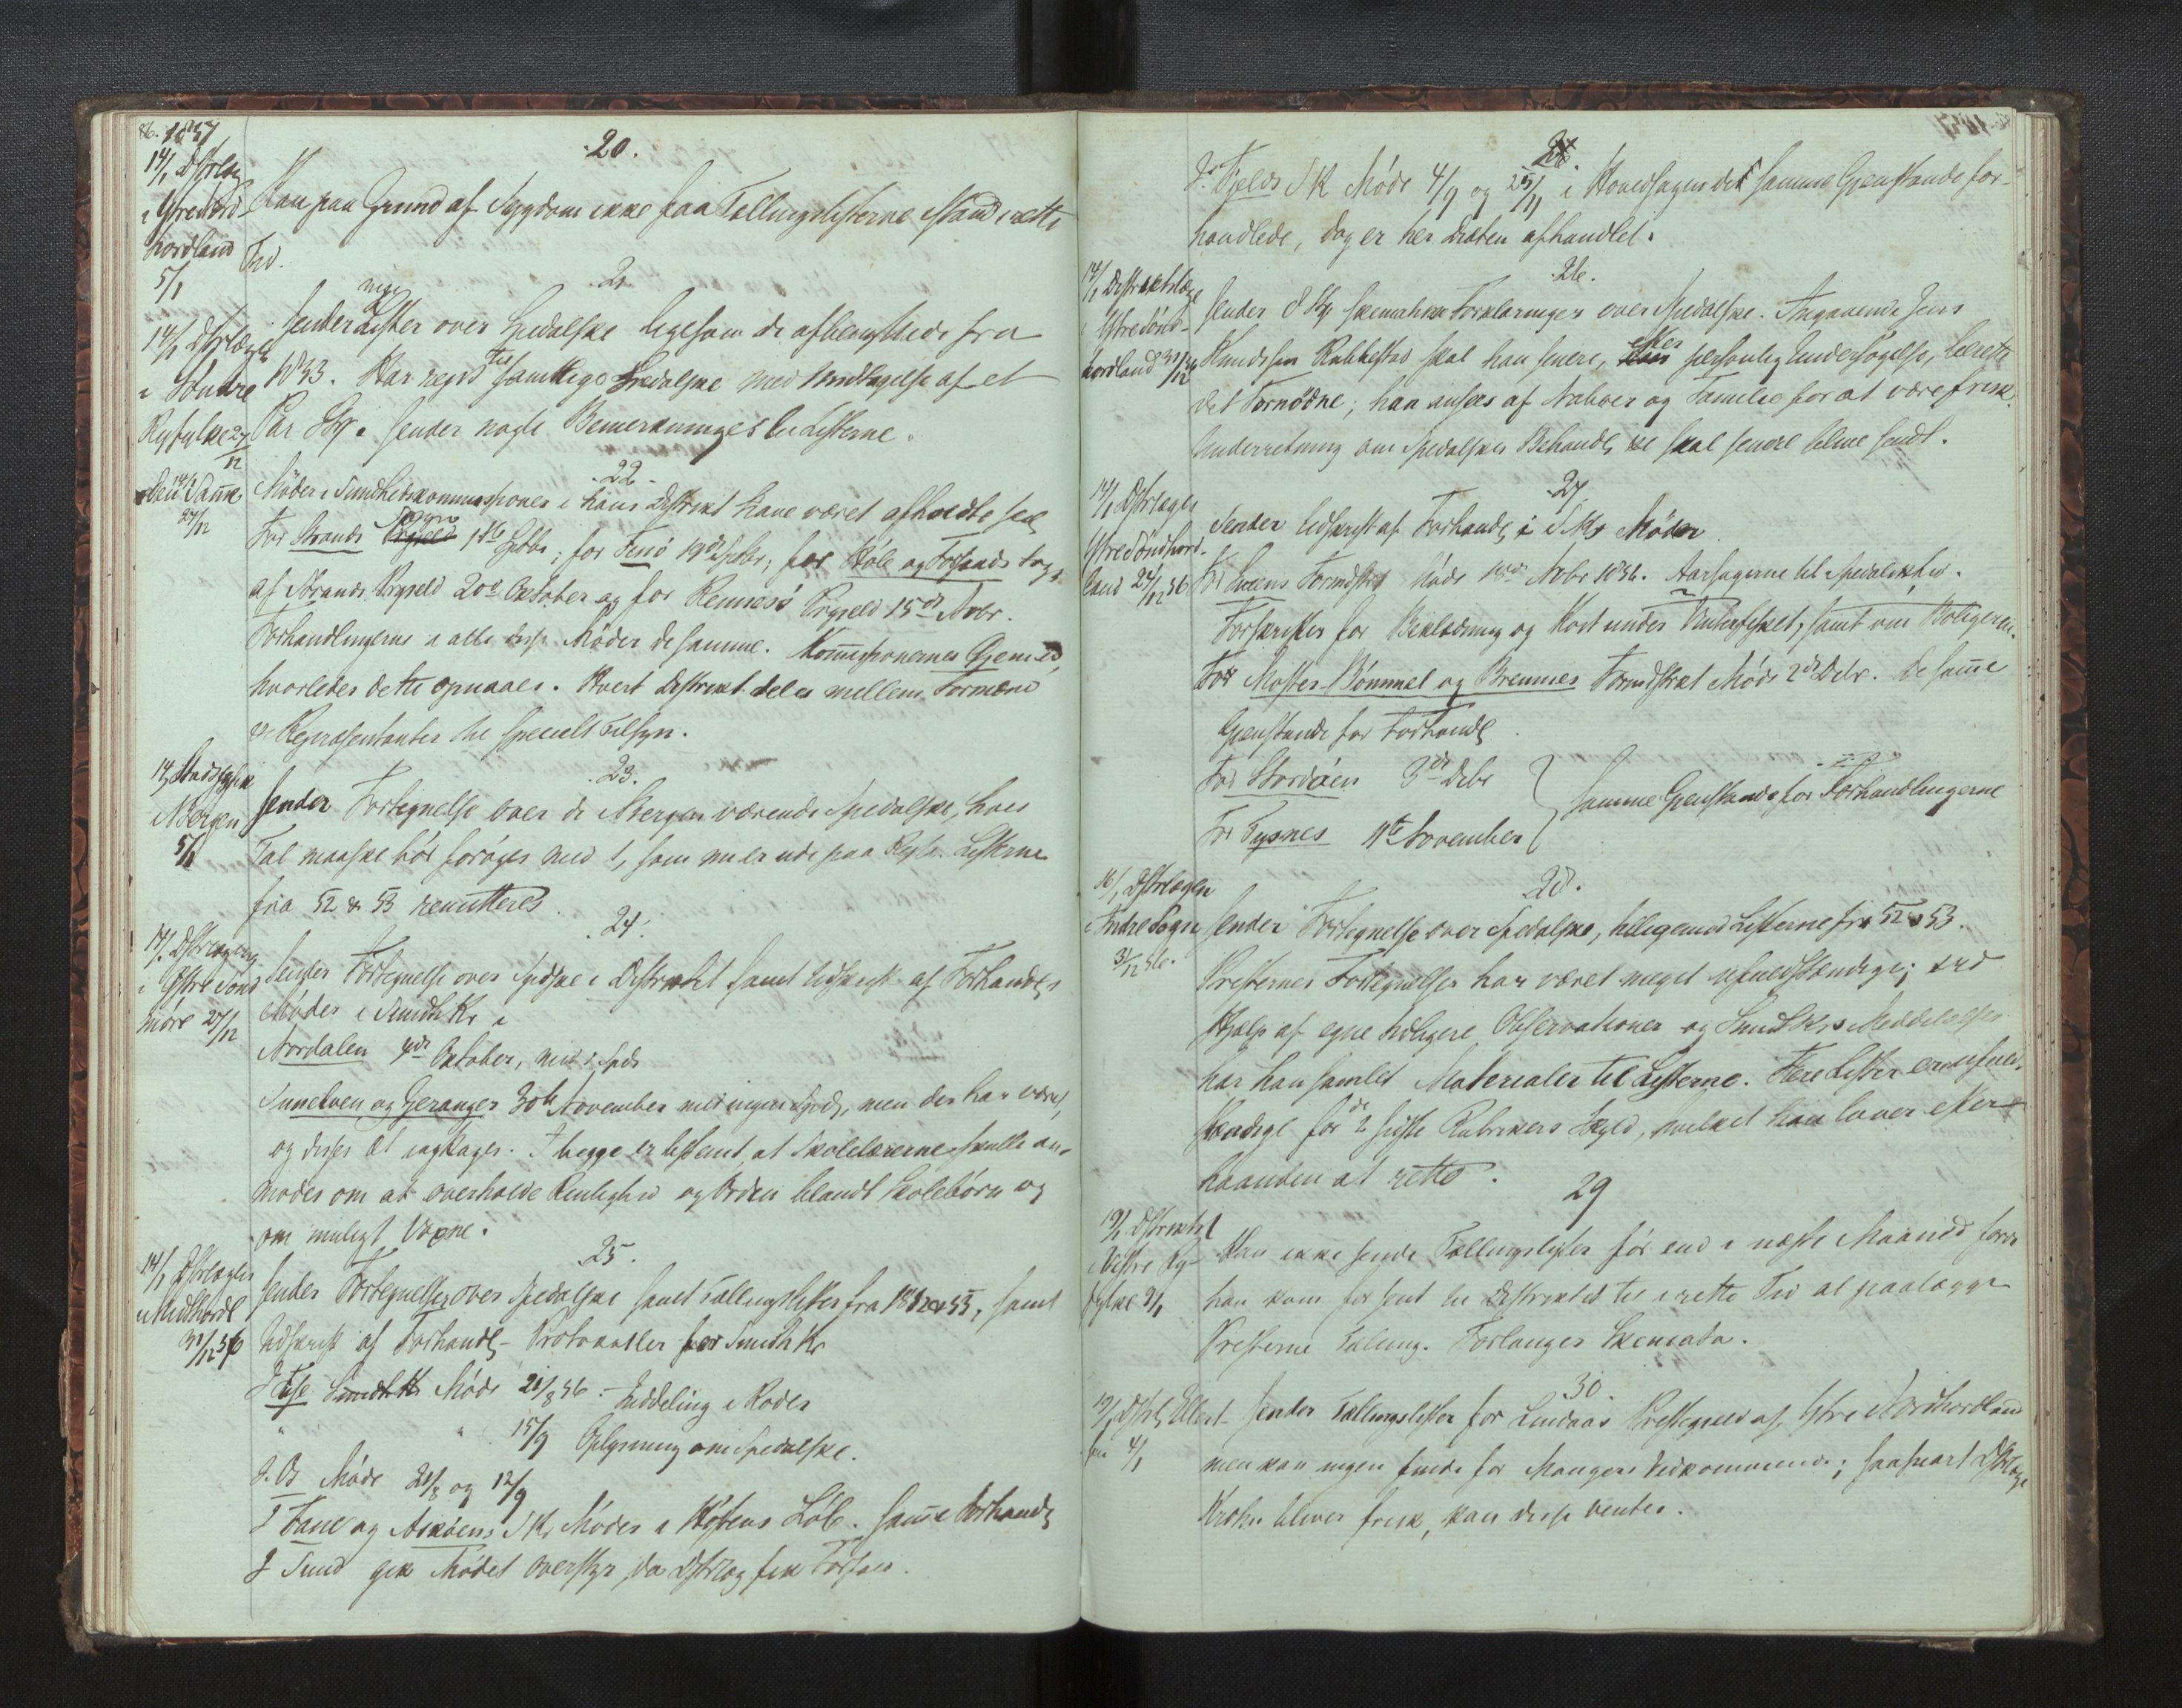 86. 1857
.20.
14/1 Dstrlæg
i Ytre Nord-
hordland
5/1
Kan paa Grund af Sygdom ikke faa Tællingslisterne istand i rette
Tid.
.21.
14/1 Dstrlæge
i Söndre
Ryfylke 27/12
Sender nye Lister over Spedalske ligesom de afbenyttede fra
1853. Har reist til samtlige Spedalske med Undtagelse af et
Par Stkr. Sender nogle Bemerkninger til Listerne.
.22.
14/1
27/12
Möder i Sundhedskommissioner i hans Distrikt have været afholdte
For Strands Sogn 1ste Septbr; for Finnö 19de Septbr; for Höle og Forsands Sogne
af Strands Prgjeld 20de October og for Rennesö Prgjeld 15de Novbr.
Forhandlingerne i alle disse Möder de samme. Kommissionernes Gjemed,
hvorledes dette opnaaes. Hvert Distrikt deles mellem Formænd
og Repræsentanter til specielt Tilsyn.
.23.
14/1 Stadsfysik
i Bergen
5/1
Sender Fortegnelse over de i Bergen værende Spedalske, hvis
Tal maaske bör foröges med 1, som nu er ude paa Reise. Listerne
fra 52 & 53 remitteres.
.24.
14/1 Dstrlægen
i Ytre Sönd
möre 27/12
Sender Fortegnelse over Spedske i Distriktet samt Udskrift af Forhandlr
Möder i SundhKr i
Nordalen 4de October, med
Sunelven og Geranger 30te November med ingen Spedsk, men der har været,
og disses Æt iagttages. I begge er bestemt at Skolelærerne skulle an-
modes om at overholde Renlighed og Orden blandt Skolebörn og
om muligt Voxne.
.25.
14/1 Dstrlægen
i Midthordl
31/12 56
Sender Fortegnelse over Spedalske samt Tællingslister fra 1852 & 53, samt
Udskrift af Forhandl- Protokoller for SundhKr
I Fuse SundhK Möde 21/8 56. Inddeling i Roder
" " 15/9 Oplysning om Spedalske.
I Os Möde 21/8 og 12/9
I Fane og Asköens SK. Möder i Höstens Löb. Samme Forhandl
I Sund gik Mödet overstyr, da Dstrlæg fik Forfald.
I Fjelds SK Möde 4/9 og 25/11 i Hovedsagen de samme Gjenstande for-
handlede, dog er her Diæten afhandlet.
.26.
14/1 Distriktslæge
i Ytre Sönd-
hordland 31/12
Sender 8 Stkr skematiske Forklaringer over Spedalske. Angaaende Jens
Knudsen Rabbestad skal han senere, efter personlig Undersögelse, berette
det Fornödne; han ansees af Naboer og Familie for at være frisk.
Underretning om Spedalskes Behandl skal senere blive sendt.
.27.
14/1 Dstrlægen
Ytre Söndhord-
land 27/12 56
Sender Udskrift af Forhandl i SKs Möder.
For Sveens Formdstrct Möde 18de Novbr 1856. Aarsagerne til Spedalskhed.
Forskrifter for Beklædning og Kost under Vinterfisket, samt om Boligerne.
For Moster, Bömmel og Bremnes Formdstrct Möde 2de Debr. De samme
Gjenstande for Forhandl.
For Stordöen 3de Debr
For Tysnes 11te November
Samme Gjenstande for Forhandlingerne
28.
16/1 Dstrlægen
i Indre Sogn
31/12 56.
Sender Fortegnelse over Spedalske, tilligemed Listerne fra 52 & 53.
Presternes Fortegnelser har været meget ufuldstændige; ved
Hjælp af egne tidligere Observationer og SundKrs Meddelelser
har han samlet Materialer til Listerne. Flere Lister ere ufuld-
stændige for de 2 sidste Rubrikers Skyld, hvilket han lover efter-
haanden at rette.
29
19/1 Distriktsl
i Vestre Ry-
fylke 3/1
Kan ikke sende Tællingslister för end i næste Maaned fordi
han kom for sent til Distriktet til i rette Tid at paalægge
Presterne Tælling. Forlanger Skemata.
.30.
19/1 Dstrl Ellert-
sen 4/1
Sender Tællingslister for Lindaas Prestegjeld af Ytre Nordhordland
men kan ingen finde for Mangers Vedkommende; saasnart Dstrlæge
Krohn bliver frisk, kan disse ventes.